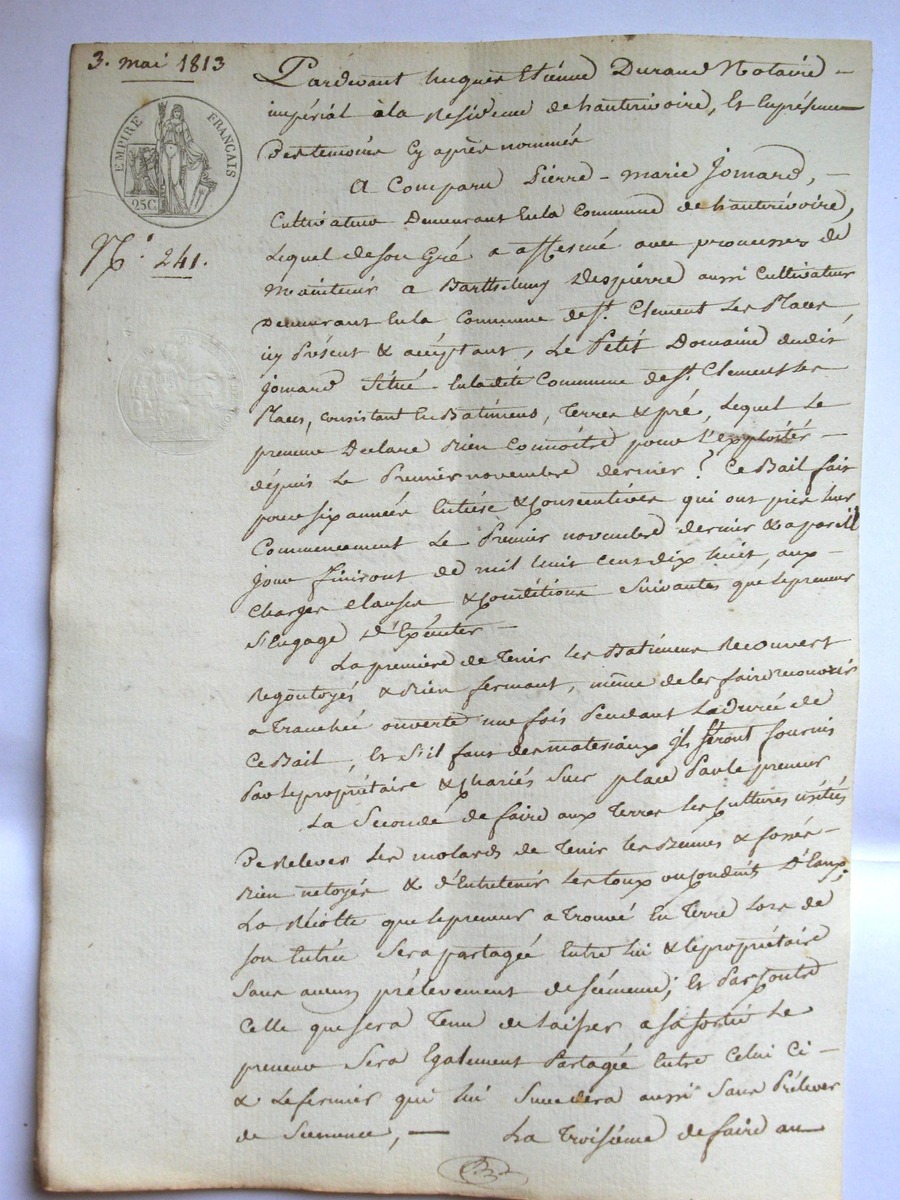 3. mai 1813
EMPIRE FRANÇAIS
25C
N.° 241.
Pardevant hugues Etienne Durand Notaire
impérial à la Residence de hauterivoire, Et En présence
Des temoins Cy après nommés
A Comparu Pierre-marie Jomard,
Cultivateur Demeurant En la Commune de hauterivoire,
Lequel de son Gré a affermé avec promesses de
Maintenir a Barthelemy Despierre aussi Cultivateur
Demeurant En la Commune de St. Clement Les Places
icy Présent & acceptant, Le Petit Domaine dudit
Jomard Situé En la dite Commune de St. Clement Les
Places, consistant En Batimens, Terres & pré, Lequel Le
preneur Declare Bien Connoitre pour l'exploiter
dépuis Le Premier novembre dernier? Ce Bail fait
pour six années Entière & Consecutives qui ont pris leur
Commencement Le Premier novembre dernier & a pareil
Jour finiront de mil huit cent dix huit, aux
Charges clauses & Conditions Suivantes que le preneur
S'Engage D'Exécuter
La première de Tenir les Batimens Recouvert
Regoutoyés & Bien fermant, même de les faire recouvrir
a Tranchée ouverte une fois Pendant La durée de
Ce Bail, Et S'il faut des materiaux ils Seront fournis
Par le propriétaire & Chariés Sur place Par le preneur
La Seconde de faire aux Terres les Cultures usités
De Relever Les molards de Tenir les & fossés
Bien netoyés & d'Entretenir Les ou Conduit D'Eaux,
La Récolte que le preneur a Trouvé En Terre Lors de
Son Entrée Sera partagée Entre Lui & le propriétaire
Sans aucun prélevement de Sémence; Et Par Contre
Celle que sera Tenu de Laisser a Sa Sortie Le
preneur Sera Egalement Partagée Entre Celui Ci
& Le fermier qui lui Succedera aussi Sans Prélever
de Semence, La Troisième de faire au